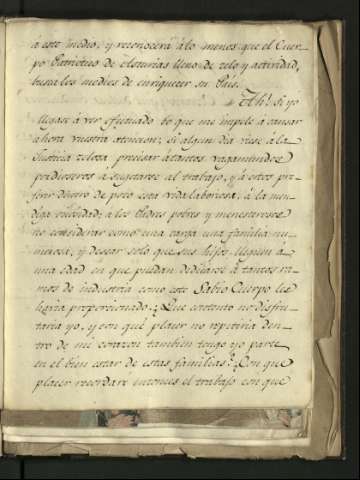 á este medio, y reconocerá á lo menos que el Cuer-
po Patriotico de Asturias lleno de zelo y actividad,
busca los medios de enriquecer su País.
Ah! si yo
llegase á vér efectuado lo que me impele á cansar
ahora vuestra atencion; si algun dia viese á la
Justicia zelosa precisar á tantos vagamundos
pordioseros á sugetarse al trabajo, y á estos pre-
ferir dentro de poco esta vida laboriosa, á la men-
diga ociosidad; a los Padres pobres y menesterosos
no considerar como una carga una familia nu-
merosa, y desear solo que sus hijos lleguen á
una edad en que puedan dedicarse á tantos ra-
mos de industria como este Sabio Cuerpo les
havrá proporcionado; Que contento no disfru-
taria yo, y con qué placer no repitiria den-
tro de mi corazon tambien tengo yo parte
en el bien estar de estas familias? Con que
placer recordaré entonces el trabajo con que